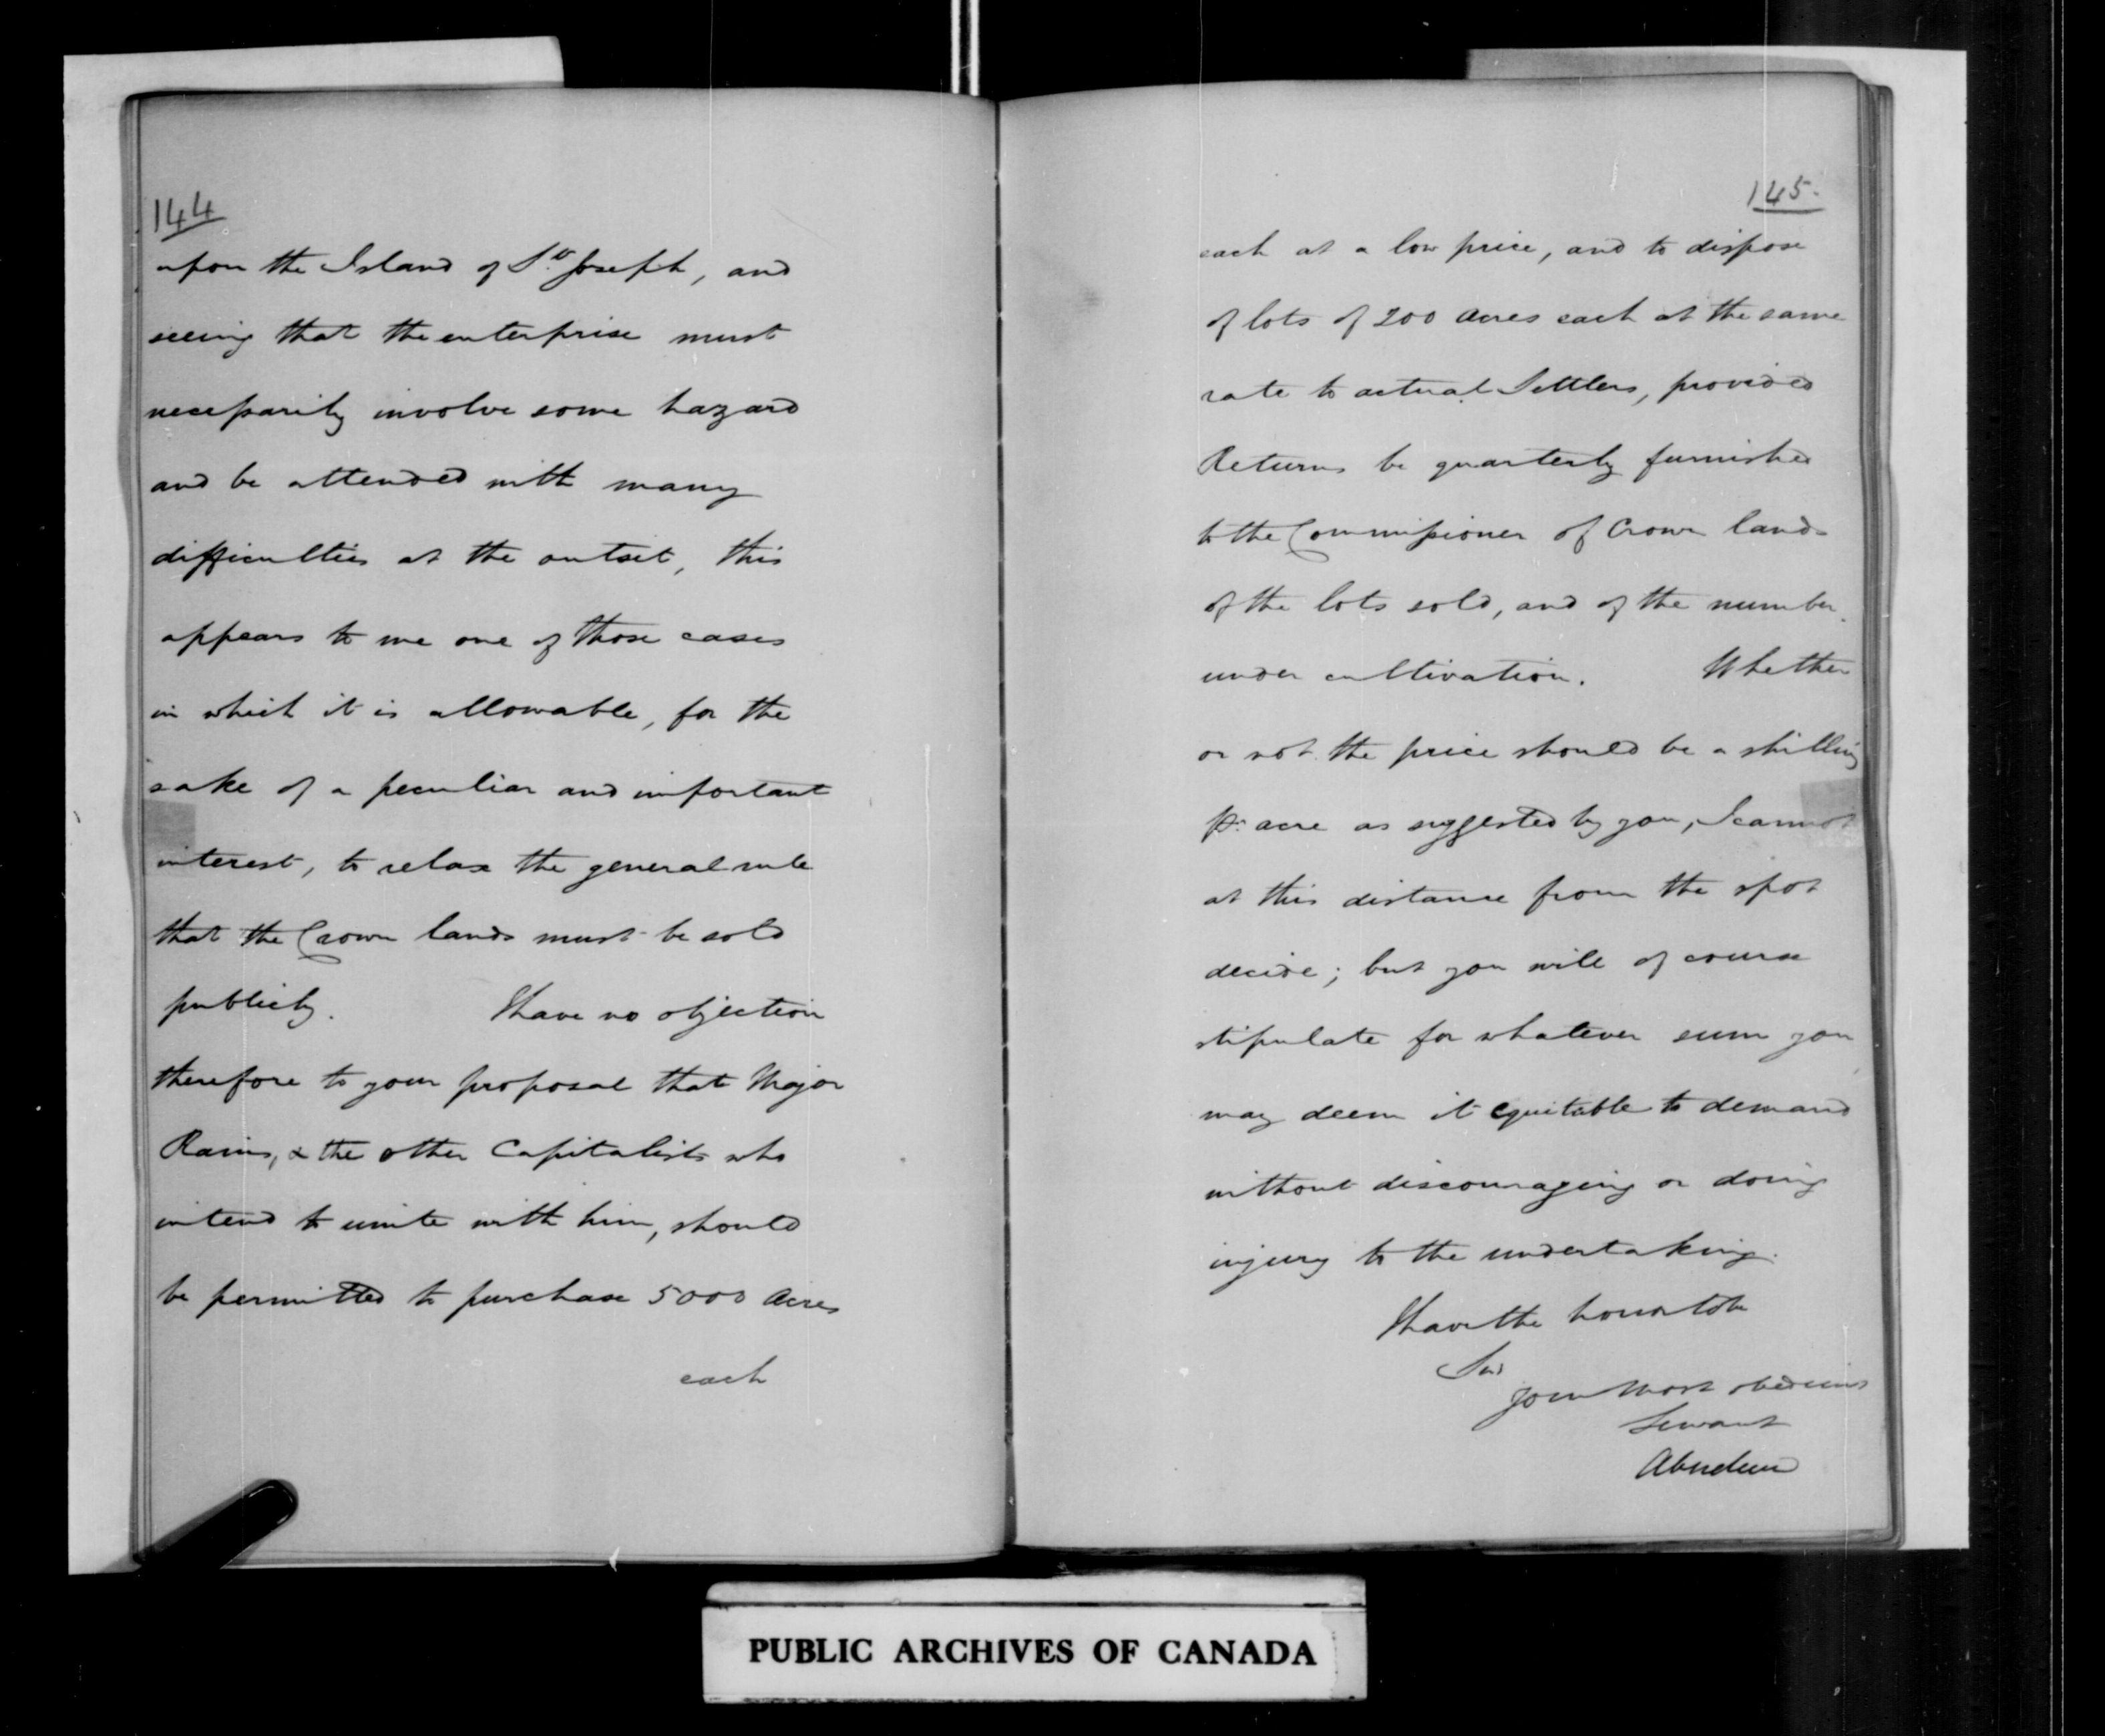 144
upon the Island of St. Joseph, and
seeing that the enterprise must
necessarily involve some hazard
and be attended with many
difficulties at the outset, this
appears to me one of those cases
in which it is allowable, for the
sake of a peculiar and important
interest, to relax the general rule
that the Crown lands must be sold
publicly. I have no objection
therefore to your proposal that Major
Rains, & the other Capitalists who
intend to unite with him, should
be permitted to purchase 5000 Acres
each
145.
each at a low price, and to dispose
of lots of 200 Acres each at the same
rate to actual Settlers, provided
Returns be quarterly furnished
to the Commissioner of Crown lands
of the lots sold, and of the number
under cultivation. Whether
or not the price should be a shilling
pr. acre as suggested by you, I cannot
at this distance from the spot
decide; but you will of course
stipulate for whatever sum you
may deem it equitable to demand
without discouraging or doing
injury to the undertaking.
I have the honor to be
Sir
your most obedient
Servant
Aberdeen
PUBLIC ARCHIVES OF CANADA